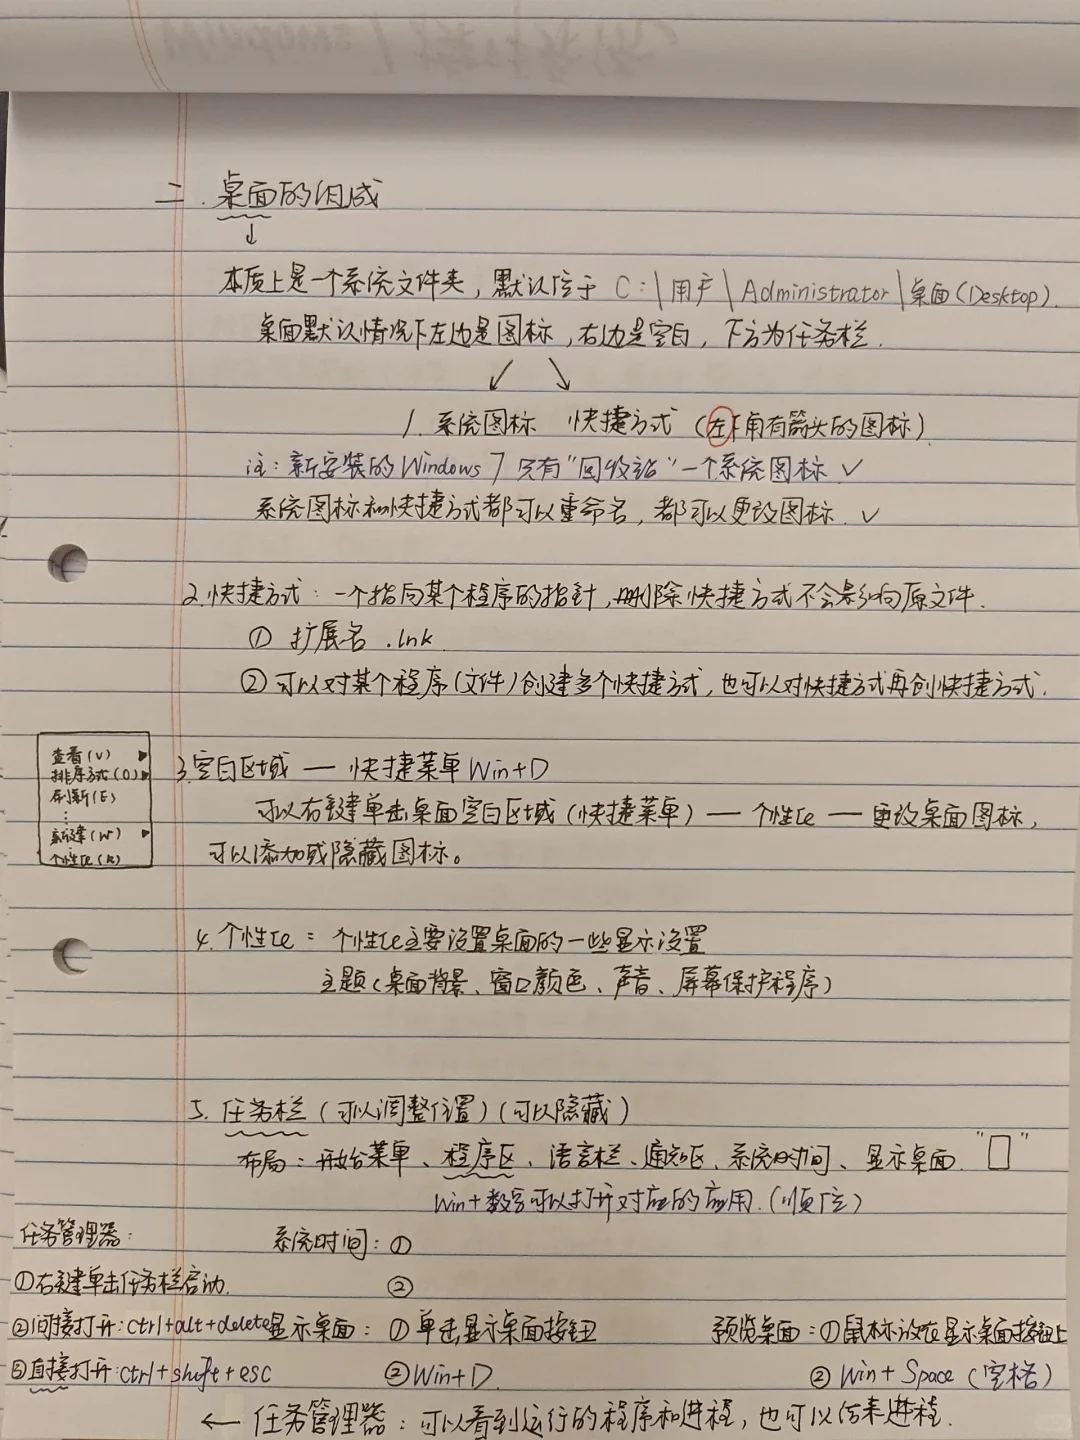 二.桌面的组成
↓
本质上是一个系统文件夹,默认位于 C:\用户\Administrator\桌面(Desktop).
桌面默认情况下左边是图标,右边是空白,下方为任务栏.
↙ ↘
1.系统图标 快捷方式(左下角有箭头的图标).
注:新安装的Windows 7 只有"回收站"一个系统图标 ✓
系统图标和快捷方式都可以重命名,都可以更改图标. ✓
2.快捷方式:一个指向某个程序的指针,删除快捷方式不会影响原文件.
① 扩展名 .lnk
② 可以对某个程序(文件)创建多个快捷方式,也可以对快捷方式再创快捷方式.
查看(V) ▶
排序方式(O) ▶
刷新(E)
⋮
新建(W) ▶
个性化(R)
3.空白区域 — 快捷菜单 Win+D
可以右键单击桌面空白区域(快捷菜单) — 个性化 — 更改桌面图标,
可以添加或隐藏图标。
4.个性化:个性化主要设置桌面的一些显示设置
主题(桌面背景、窗口颜色、声音、屏幕保护程序)
5.任务栏(可以调整位置)(可以隐藏)
布局:开始菜单、程序区、语言栏、通知区、系统时间、显示桌面. "▯"
Win+数字可以打开对应的应用.(顺位)
任务管理器: 系统时间:①
①右键单击任务栏启动. ②
②间接打开:ctrl+alt+delete 显示桌面:①单击显示桌面按钮 预览桌面:①鼠标放在显示桌面按钮上
③直接打开:ctrl+shift+esc ②Win+D. ②Win+Space(空格)
← 任务管理器:可以看到运行的程序和进程,也可以结束进程.